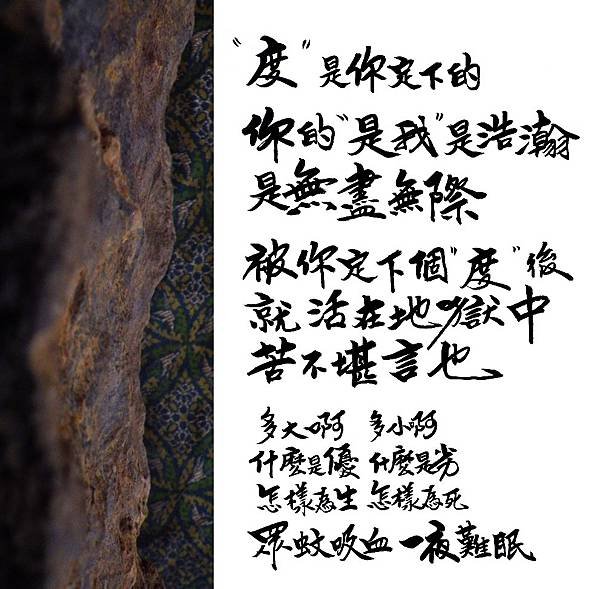 “度”是你定下的
你的“是我”是浩瀚
是無盡無際
被你定下個“度”後
就活在地獄中
苦不堪言也
多大啊 多小啊
什麼是優 什麼是劣
怎樣為生 怎樣為死
眾蚊吸血 一夜難眠